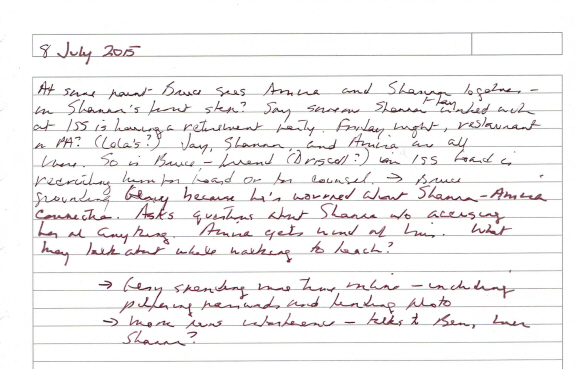 8 July 2015
At some point - Bruce sees Amina and Shannon together -
on Shannon's front step? Say someone Shannon + Jay worked with
at ISS is having a retirement party. Friday night, restaurant
in PA? (Lola's?) Jay, Shannon, and Amina are all
there. So is Bruce - friend (Driscoll?) on ISS board is
recruiting him for board or for counsel. → Bruce
grounding because he's worried about Shannon - Amina
connection. Asks questions about Shannon w/o accusing
her of anything. Amina gets wind of this. What
may talk about while walking to beach?
→ spending more time online - including
pilfering passwords and finding photo
→ more interference - talks to Ben,
Shannon?